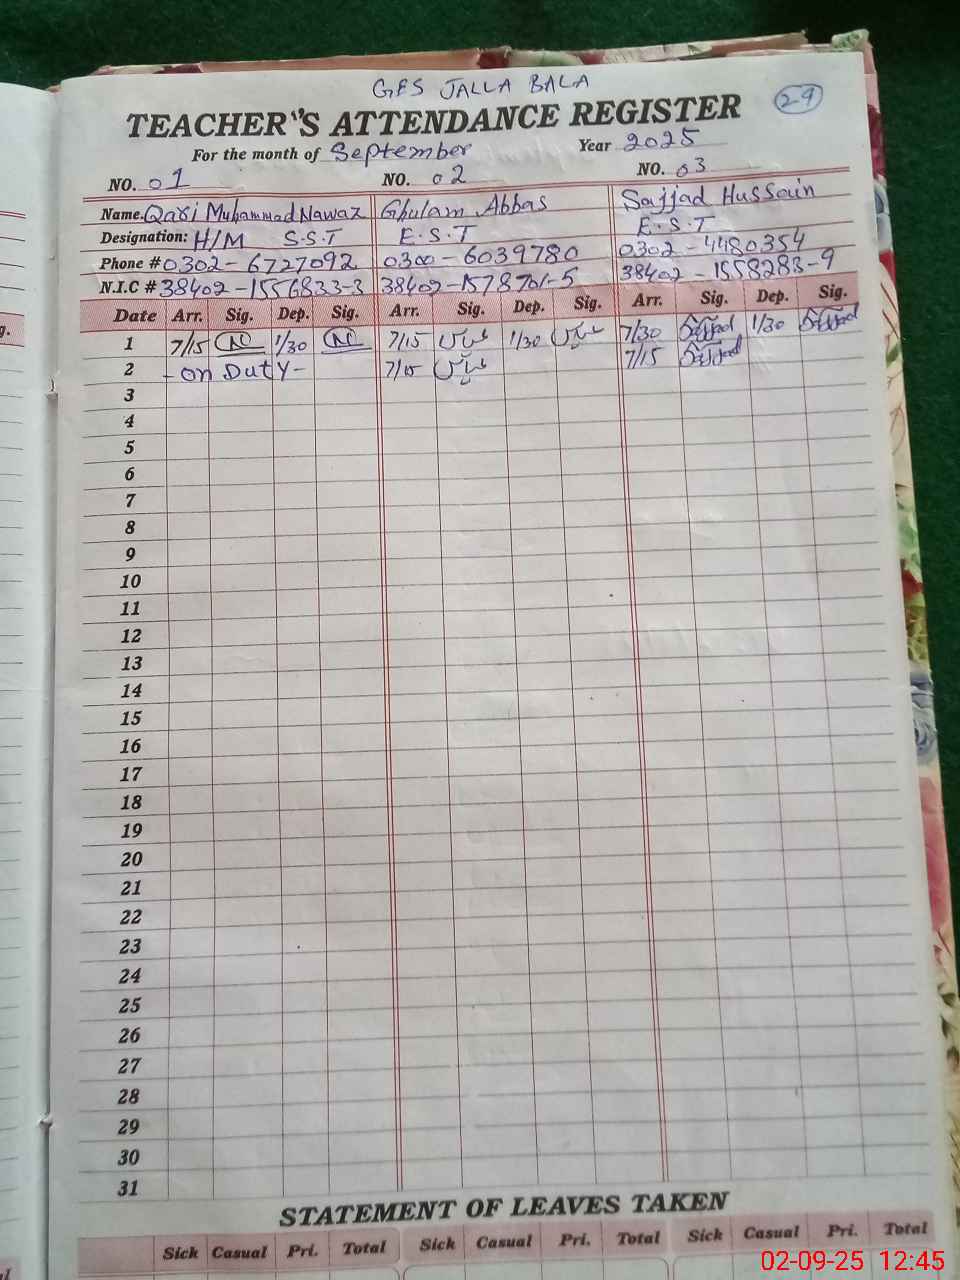 GES JALLA BALA
29
TEACHER'S ATTENDANCE REGISTER
For the month of September Year 2025
NO. 01 NO. 02 NO. 03
Name. Qari Muhammad Nawaz Ghulam Abbas Sajjad Hussain
Designation: H/M S.S.T E.S.T E.S.T
Phone # 0302-6727092 0300-6039780 0302-4480354
N.I.C # 38402-1556833-3 38402-1578701-5 38402-1558283-9
Date Arr. Sig. Dep. Sig. Arr. Sig. Dep. Sig. Arr. Sig. Dep. Sig.
1 7/15 1/30 7/15 عباس 1/30 عباس 7/30 Sajjad 1/30 Sajjad
2 - on Duty - 7/15 عباس 7/15 Sajjad
3
4
5
6
7
8
9
10
11
12
13
14
15
16
17
18
19
20
21
22
23
24
25
26
27
28
29
30
31
STATEMENT OF LEAVES TAKEN
Sick Casual Pri. Total Sick Casual Pri. Total Sick Casual Pri. Total
02-09-25 12:45